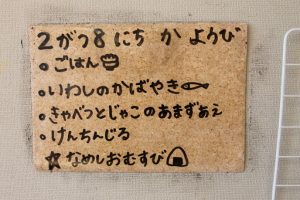 2がつ8にち かようび
ごはん
いわしのかばやき
きゃべつとじゃこのあまずあえ
けんちんじる
☆なめしおむすび